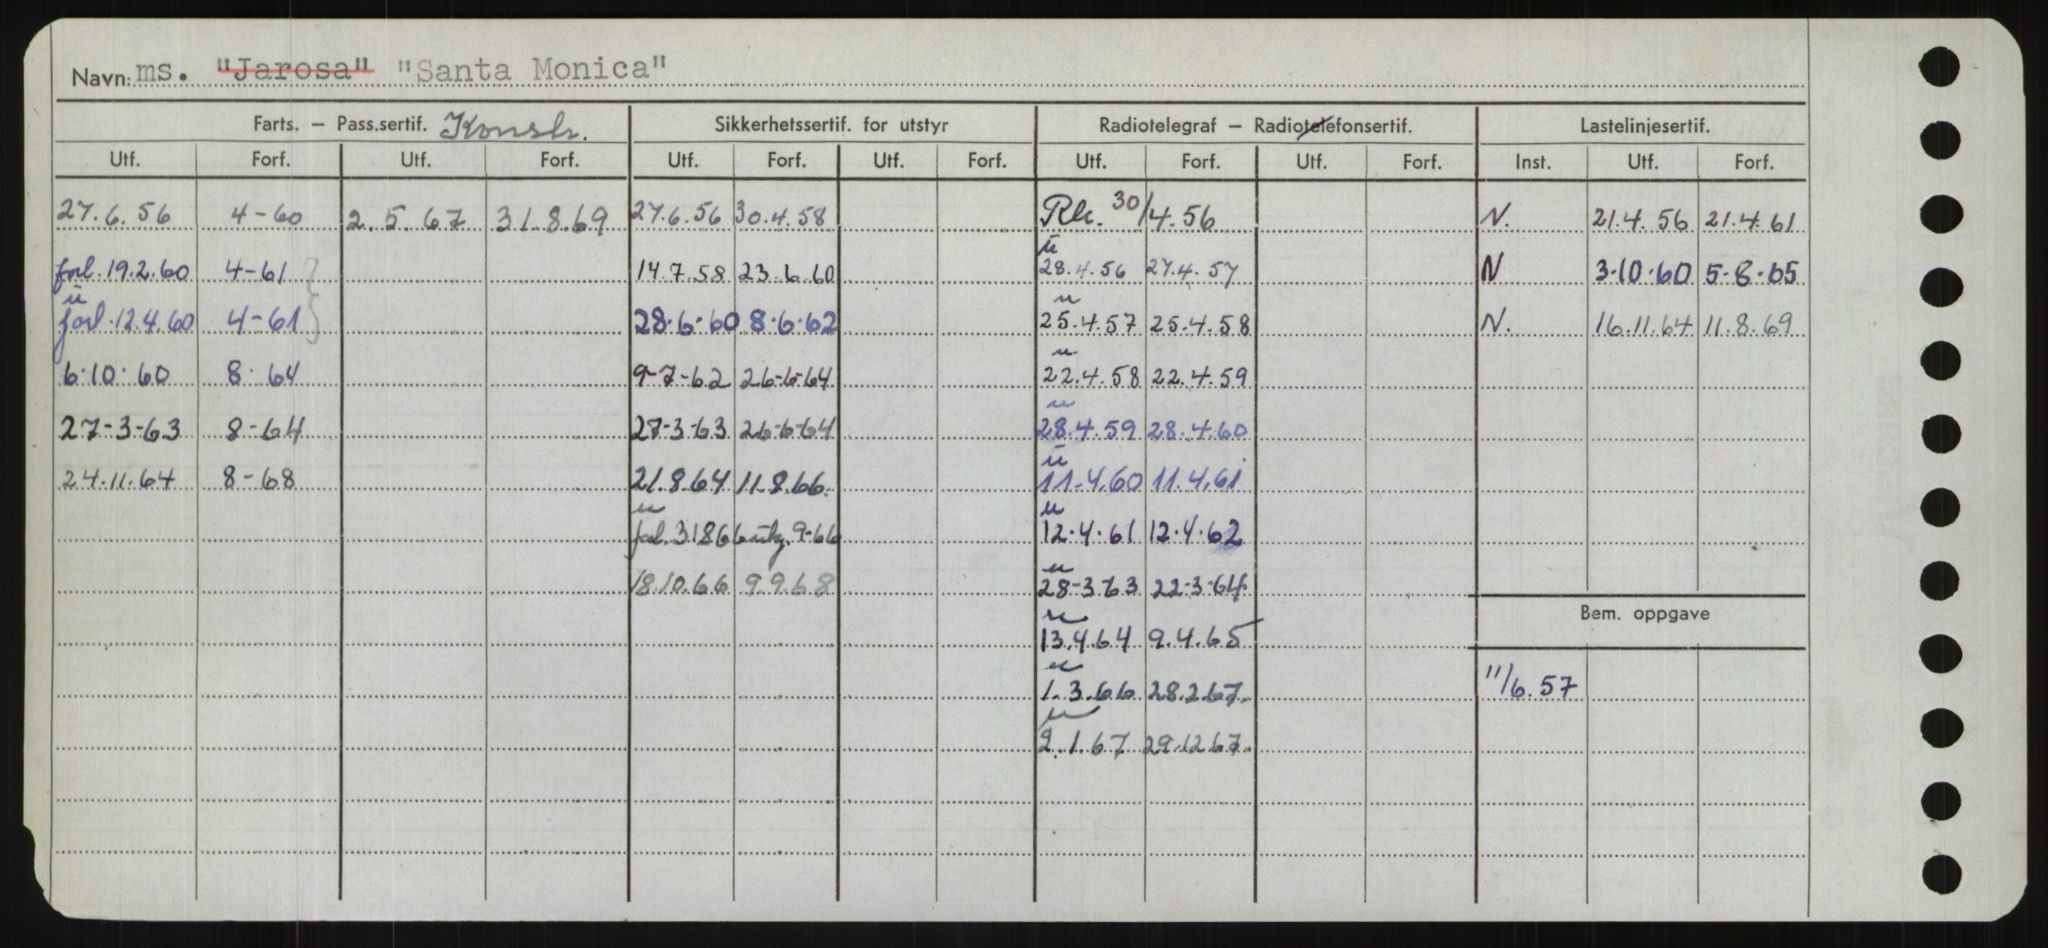 Navn: ms. "Jarosa" "Santa Monica"
Farts. — Pass.sertif. Konstr. Sikkerhetssertif. for utstyr Radiotelegraf — Radiotelefonsertif. Lastelinjesertif.
Utf. Forf. Utf. Forf. Utf. Forf. Utf. Forf. Utf. Forf. Utf. Forf. Inst. Utf. Forf.
27.6.56 4-60 2.5.67 31.8.69 27.6.56 30.4.58 Rk. 30/4.56 N. 21.4.56 21.4.61
u
forl.19.2.60 4-61 14.7.58 23.6.60 28.4.56 27.4.57 N 3-10-60 5-8-65
u u
forl.12.4.60 4-61 28-6-60 8-6-62 25.4.57 25.4.58 N. 16.11.64 11.8.69
u
6-10-60 8-64 9-7-62 26-6-64 22.4.58 22.4.59
u
27-3-63 8-64 27-3-63 26-6-64 28.4.59 28.4.60
u
24.11.64 8-68 21.8.64 11.8.66. 11.4.60 11.4.61
u u
forl.31866 9-66 12.4.61 12.4.62
u
18.10.66 9.9.68 28-3-63 22-3-64
Bem. oppgave
u
13.4.64 9.4.65
u
1.3.66 28.2.67. 11/6.57
u
2.1.67 29.12.67.